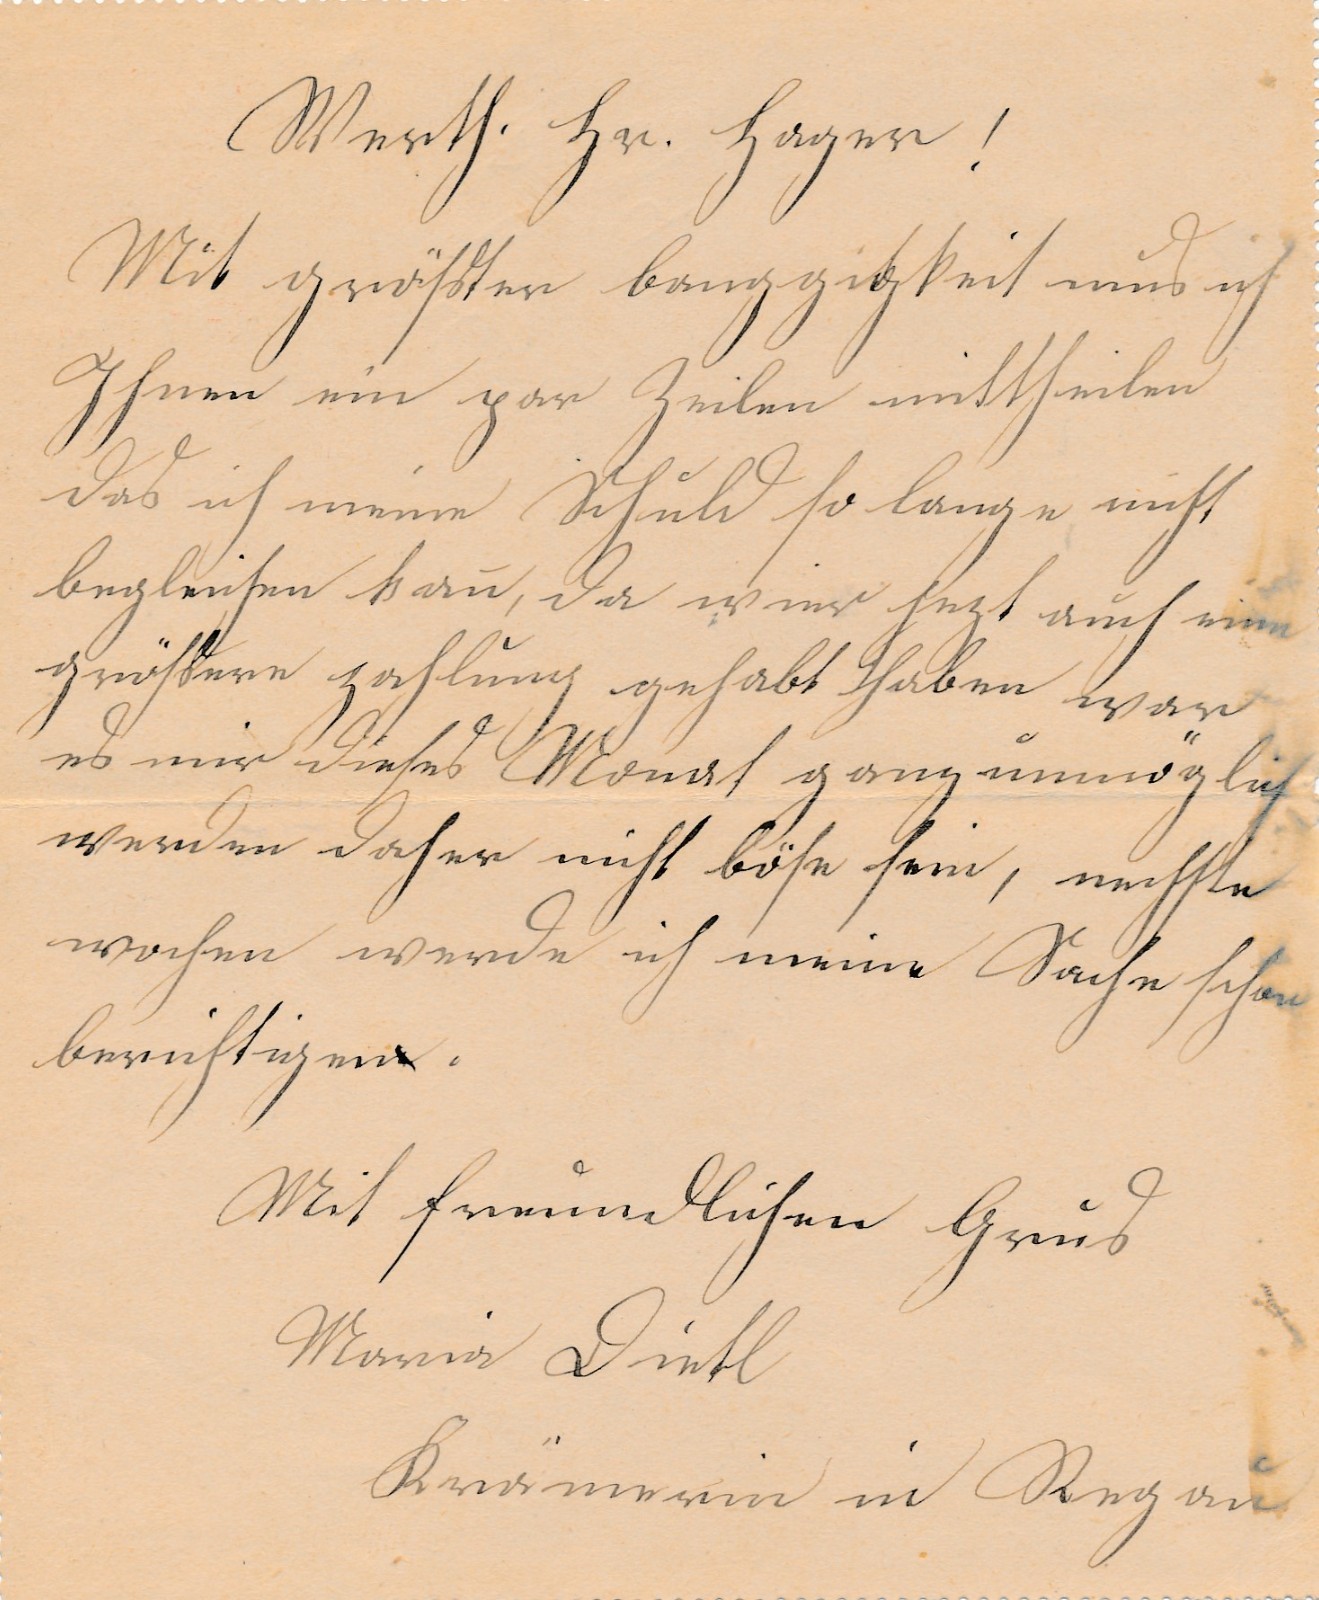 Werth. Hr. Hager!
Mit größter banggigkeit mus ich
Ihnen ein par Zeilen mittheilen
das ich meine Schuld so lange nicht
begleichen kan̄, da wier jezt auch eine
größere zahlung gehabt haben war
es mir dieses Monat ganz unmöglich
werden daher nicht böse sein, nechste
wochen werde ich meine Sache schon
berichtigen.
Mit freundlichen Grus
Maria Dietl
Krämerin in Regau